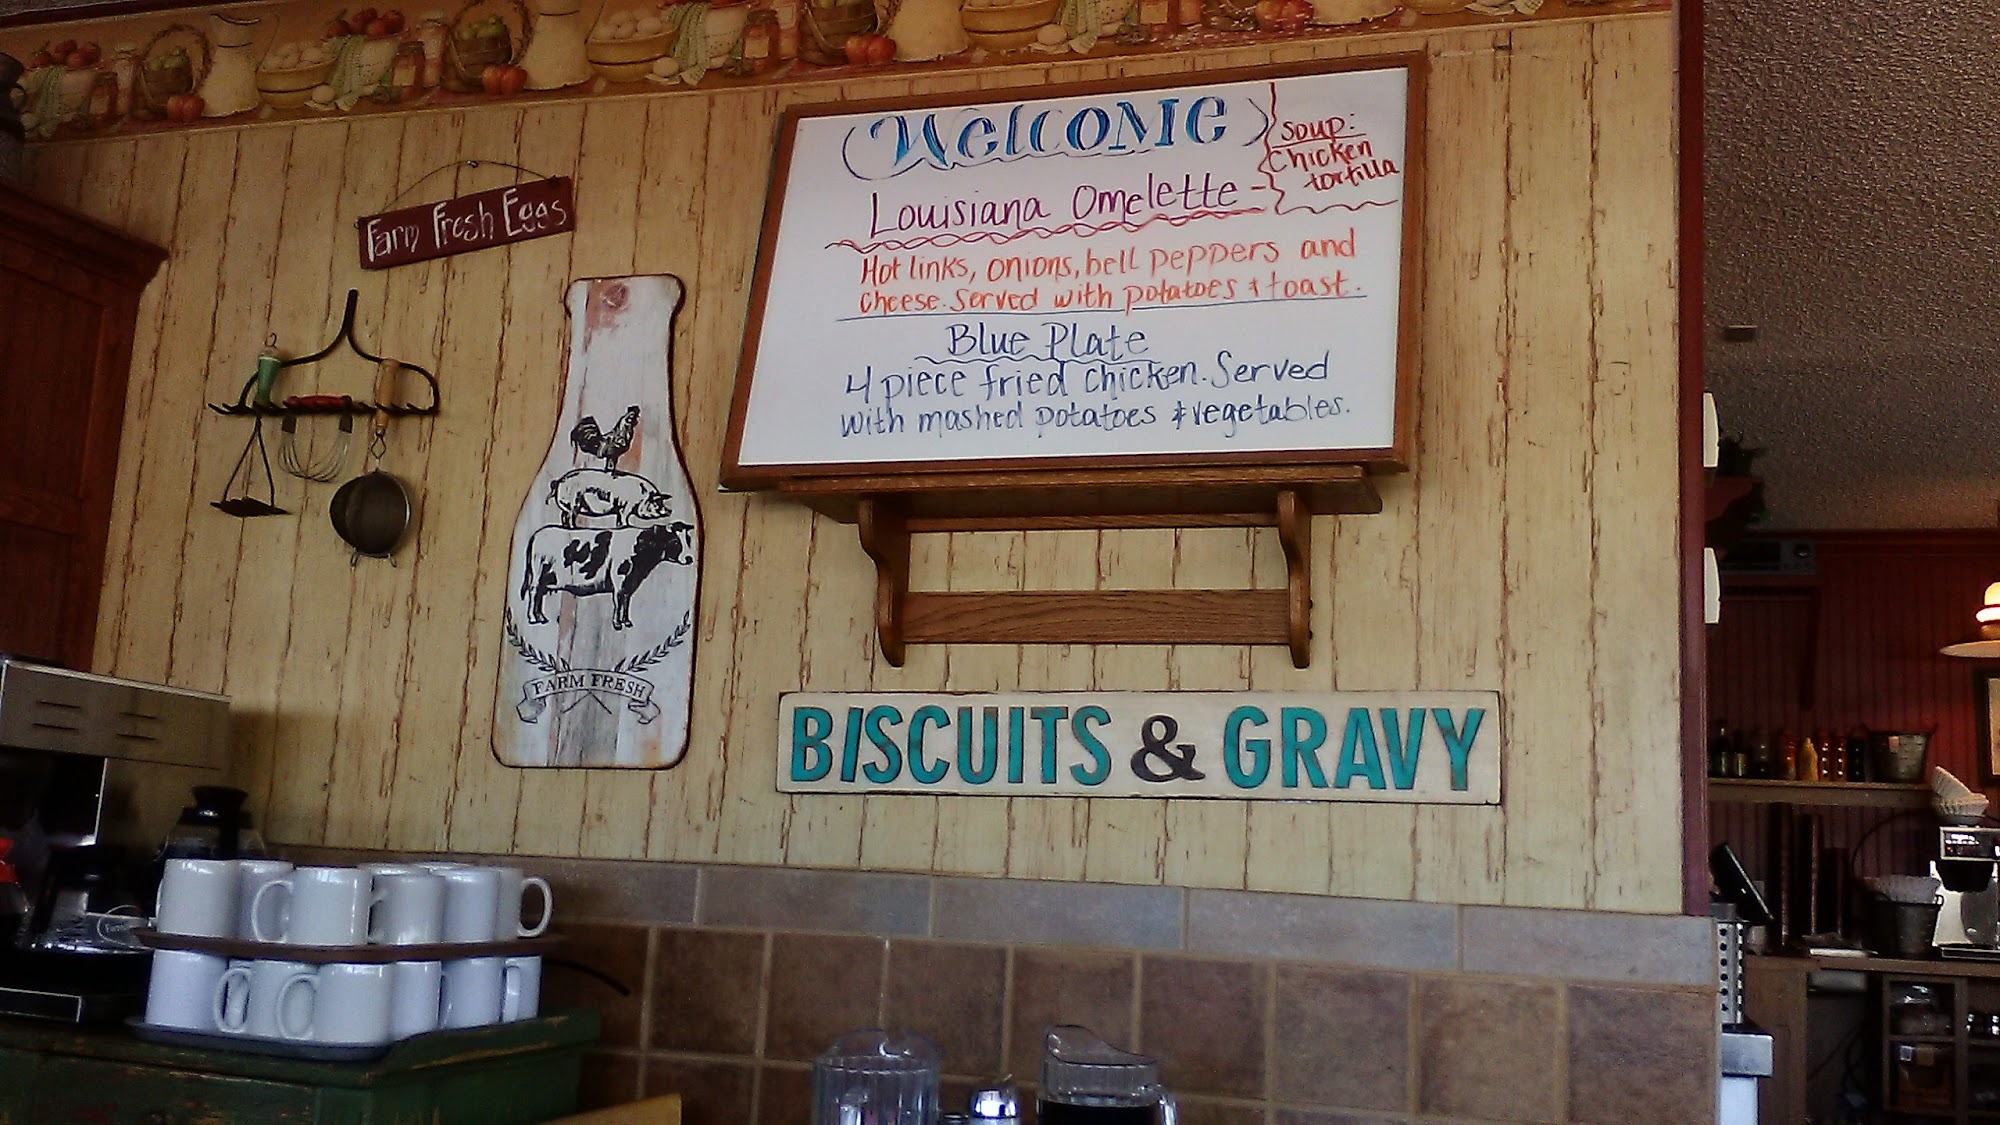 Welcome
soup:
Chicken
tortilla
Louisiana Omelette -
Hot links, onions, bell peppers and
cheese. Served with potatoes & toast.
Blue Plate
4 piece fried chicken. Served
with mashed potatoes & vegetables.
Farm Fresh Eggs
FARM FRESH
BISCUITS & GRAVY